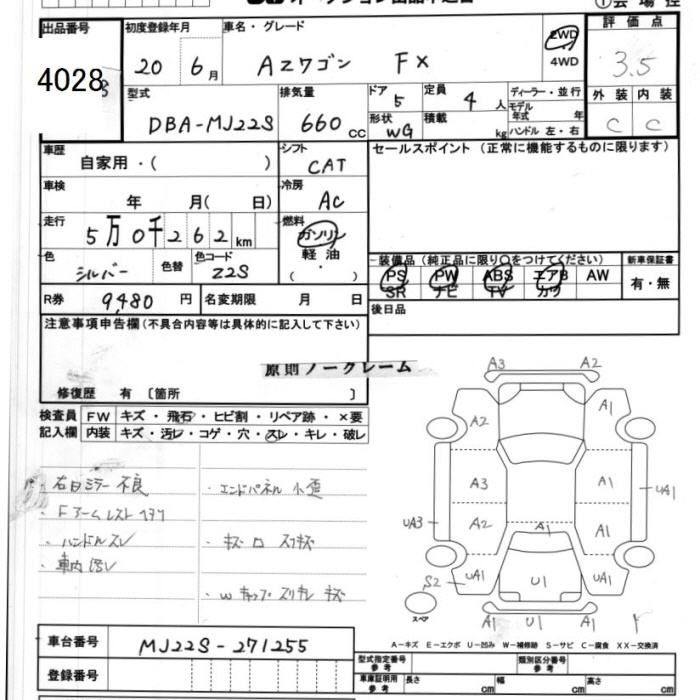 オークション出品申込書
①会場控
出品番号 初度登録年月 車名・グレード 評価点
4028 20 6月 AZワゴン FX 2WD 4WD 3.5
型式 排気量 ドア 5 定員 4人 ディーラー・並行 外装 内装
DBA-MJ22S 660cc 形状 WG 積載 kg モデル年式 年 ハンドル 左・右 C C
車歴 シフト セールスポイント (正常に機能するものに限ります)
自家用・( ) CAT
車検 冷房
年 月( 日) AC
走行 燃料
5万0千262km ガソリン
色 色替 色コード 軽油
シルバー 22S ・( )
装備品(純正品に限り○をつけてください) 新車保証書
PS PW ABS エアB AW 有・無
SR ナビ TV カワ
R券 9,480円 名変期限 月 日 後日品
注意事項申告欄(不具合内容等は具体的に記入して下さい)
原則ノークレーム
修復歴 有〔箇所 〕
検査員 FW キズ・飛石・ヒビ割・リペア跡・×要
記入欄 内装 キズ・汚レ・コゲ・穴・スレ・キレ・破レ
・右ミラー不良 ・エンドパネル小歪
・Fアームレスト
・ハンドルスレ ・キズ
・車内
A3 A2
A2 A1
A3 A1 UA1
UA3 A2 A1 A1
S2 UA1 U1 UA1
スペア A1 U1 A1
A-キズ E-エクボ U-凹み W-補修跡 S-サビ C-腐食 XX-交換済
車台番号 MJ22S-271255
登録番号
型式指定番号 参考 類別区分番号 参考
車庫証明用 参考 長さ cm 幅 cm 高さ cm